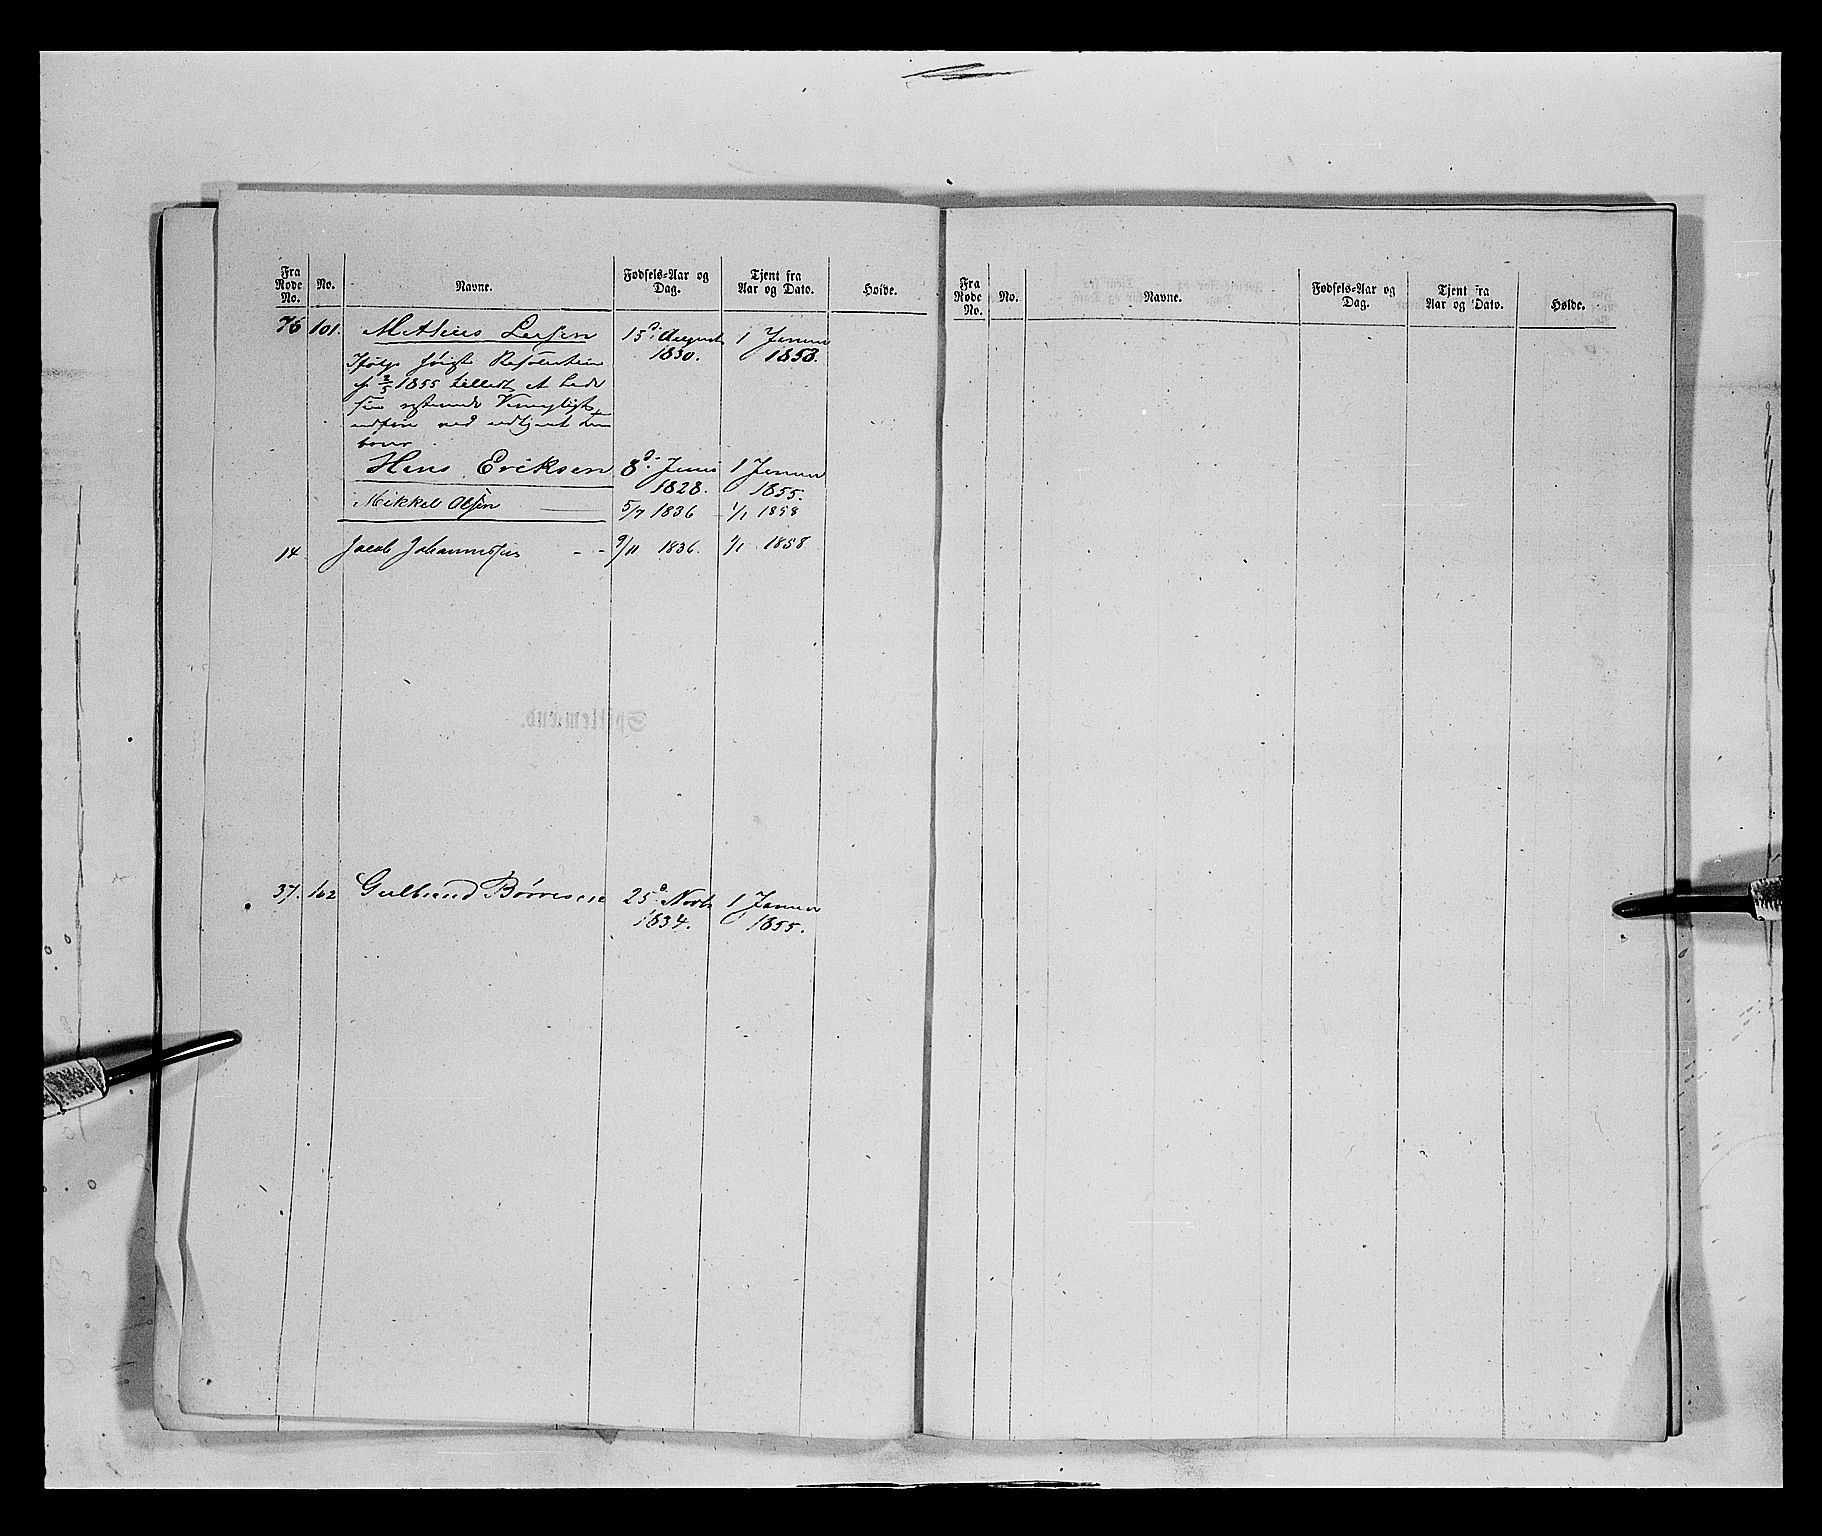 Fra Rode No. No. Navne. Fødsels-Aar og Dag. Tjent fra Aar og Dato. Høide.
76 101. Mathias Larsen 15d August 1830. 1 Januar 1853.
Ifølge Resolution
af 1855 tilladt at lade
sin resterende
udføre ved udtjent
Hans Eriksen 8d Juni 1828. 1 Januar 1855.
Mikkel Olsen 5/7 1836 1/1 1858
14. Jacob Johannessen 9/11 1836. 1/1 1858
37. 102 Gulbrand Børresen 25d Novbr 1834. 1 Januar 1855.
Fra Rode No. No. Navne. Fødsels-Aar og Dag. Tjent fra Aar og Dato. Høide.